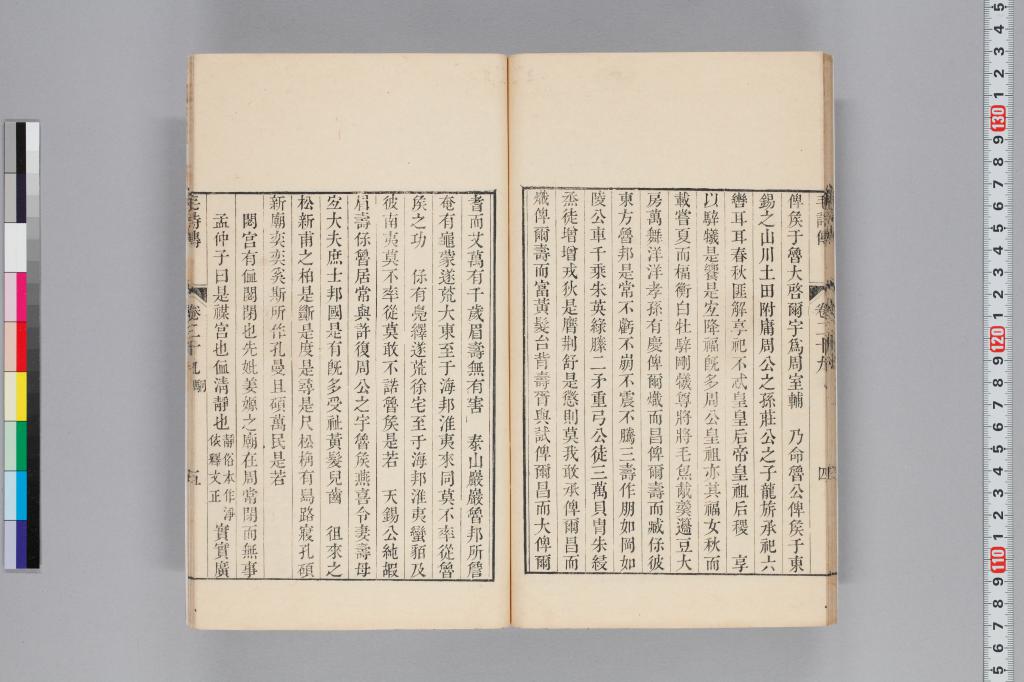 俾矦于魯大啓爾宇爲周室輔　乃命魯公俾矦于東
錫之山川土田附庸周公之孫莊公之子龍旂承祀六
轡耳耳春秋匪解享祀不忒皇皇后帝皇祖后稷　享
以騂犧是饗是宐降福旣多周公皇祖亦其福女秋而
載嘗夏而楅衡白牡騂剛犧尊將將毛炰胾羹籩豆大
房萬舞洋洋孝孫有慶俾爾熾而昌俾爾壽而臧保彼
東方魯邦是常不虧不崩不震不騰三壽作朋如岡如
陵公車千乘朱英綠縢二矛重弓公徒三萬貝冑朱綅
烝徒增增戎狄是膺荆舒是懲則莫我敢承俾爾昌而
熾俾爾壽而富黃髮台背壽胥與試俾爾昌而大俾爾
毛詩傳　卷二十九　四
耆而艾萬有千歲眉壽無有害　泰山巖巖魯邦所詹
奄有龜蒙遂荒大東至于海邦淮夷來同莫不率從魯
矦之功　保有鳧繹遂荒徐宅至于海邦淮夷蠻貊及
彼南夷莫不率從莫敢不諾魯矦是若　天錫公純嘏
眉壽保魯居常與許復周公之宇魯矦燕喜令妻壽母
宐大夫庶士邦國是有旣多受祉黃髮兒齒　徂來之
松新甫之柏是斷是度是尋是尺松桷有舄路寢孔碩
新廟奕奕奚斯所作孔曼且碩萬民是若
閟宮有侐閟閉也先妣姜嫄之廟在周常閉而無事
孟仲子曰是禖宮也侐淸靜也靜俗本作淨依釋文正實實廣
毛詩傳　卷二十　五